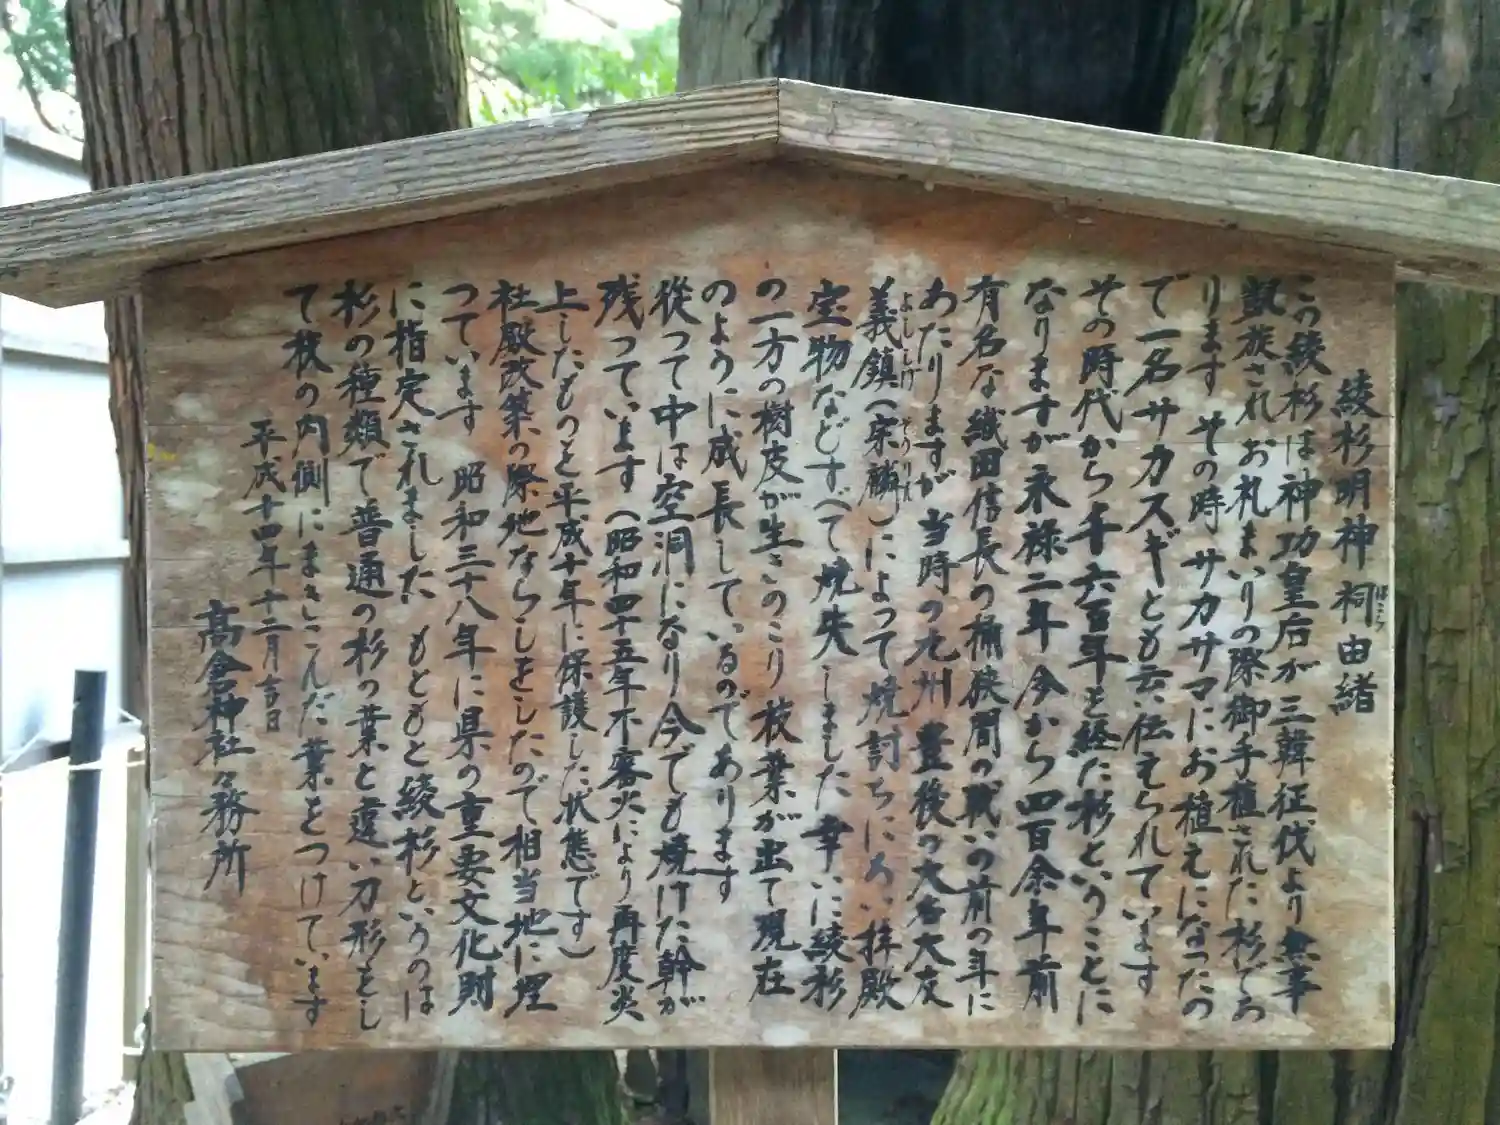 綾杉明神祠由緒
ほこら
この綾杉は神功皇后が三韓征伐より無事
凱旋されお礼まいりの際御手植された杉であ
ります その時サカサマにお植えになったの
で一名サカスギとも云い伝えられています
その時代から千六百年も経た杉ということに
なりますが永禄二年今から四百余年前
有名な織田信長の桶狭間の戦いの前の年に
あたりますが当時の九州豊後の大名大友
義鎮(宗麟)によって焼討ちにあい拝殿
よししげ そうりん
宝物などすべて焼失しました 幸いに綾杉
の一方の樹皮が生きのこり枝葉が出て現在
のように成長しているのであります
従って中は空洞になり今でも焼けた幹が
残っています(昭和四十五年不審火により再度炎
上したものを平成十年に保護した状態です)
社殿改築の際地ならしをしたので相当地に埋
っています 昭和三十八年に県の重要文化財
に指定されました もともと綾杉というのは
杉の種類で普通の杉の葉と違い刀形をし
て枝の内側にまきこんだ葉をつけています
平成十四年十二月吉日
高倉神社々務所